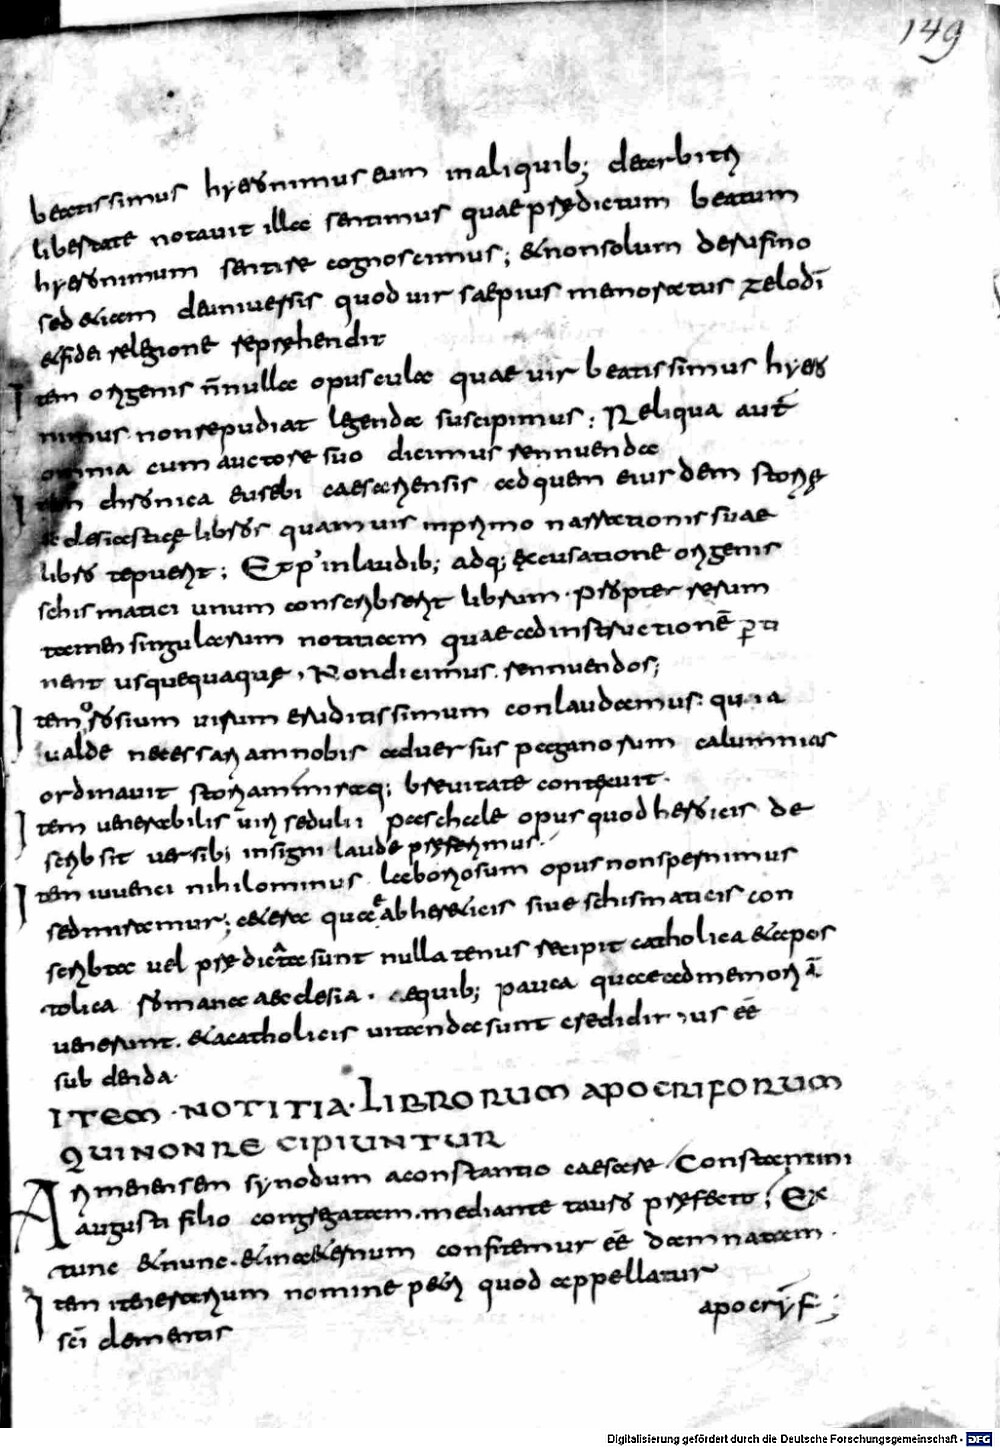 149
beatissimus hyeronimus eum in aliquib; de arbitrii
libertate notavit illa sentimus quae prędictum beatum
hyeronimum sentire cognoscimus; & non solum de rufino
sed & iam de universis quod vir saepius memoratus zelo dī
& fidei relegione repręhendit
Item origenis n̄nulla opuscula quae vir beatissimus hyero
nimus non repudiat legenda suscipimus; Reliqua aut̄
omnia cum auctore suo dicimus rennuenda
Item chronica eusebi caesariensis ad quem eiusdem storię
ęclesiasticę libros quamvis in primo narrationis suae
libro tepuerit; Et p' in laudib; adq; excusatione origenis
schismatici unum conscribserit librum. propter rerum
tamen singularum notitiam quae ad instructionē ꝑti
nent usquequaquę, Non dicimus rennuendos;
Item orosium virum eruditissimum conlaudamus: quia
valde necessariam nobis adversus paganorum calumnias
ordinavit storiam miraq; brevitate contexuit.
Item venerabilis viri sedulii paschale opus quod heroicis de
scribsit versib; insigni laude pręferimus.
Item iuvenci nihilominus laboriosum opus non spernimus
sed miramur; c&era quae ab her&icis sive schismaticis con
scribta vel prędicata sunt nullatenus recipit catholica & apos
tolica romana aecclesia. equib; pauca quae ad memoriā
venerunt. & a catholicis vitanda sunt credidimus eē
subdenda.
ITEM · NOTITIA · LIBRORUM APOCRIFORUM
QUI NON RECIPIUNTUR
Arimenensem synodum a constantio caesare Constantini
augusti filio congregatam. mediante tauro pręfecto; Ex
tunc & nunc. & in a&ernum confitemur eē damnatam.
Item itinerarium nomine petri quod appellatur
sc̄i clementis apocrȳf;
Digitalisierung gefördert durch die Deutsche Forschungsgemeinschaft - DFG